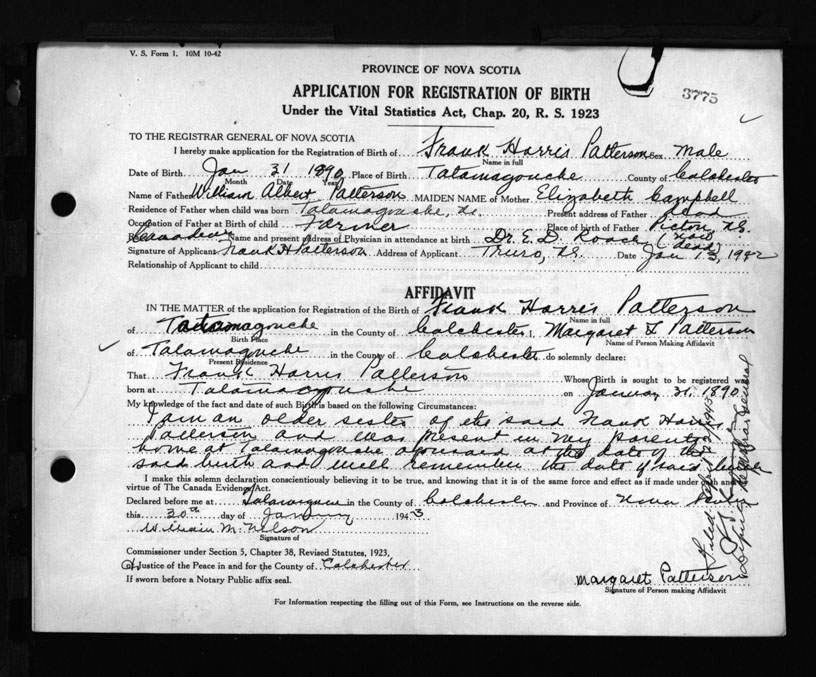 V. S. Form 1. 10M 10-42
PROVINCE OF NOVA SCOTIA
APPLICATION FOR REGISTRATION OF BIRTH
3775
Under the Vital Statistics Act, Chap. 20, R. S. 1923
TO THE REGISTRAR GENERAL OF NOVA SCOTIA
I hereby make application for the Registration of Birth of Frank Harris Patterson Sex Male
Name in full
Date of Birth Jan 31 1890 Place of Birth Tatamagouche County of Colchester
Month Date Year
Name of Father William Albert Patterson MAIDEN NAME of Mother Elizabeth Campbell
Residence of Father when child was born Tatamagouche, N.S. Present address of Father dead
Occupation of Father at Birth of child Farmer Place of birth of Father Pictou, N.S.
Canadian Name and present address of Physician in attendance at birth Dr. E. D. Roach (now dead)
Signature of Applicant Frank H Patterson Address of Applicant Truro, N.S. Date Jan 13, 1942
Relationship of Applicant to child
AFFIDAVIT
IN THE MATTER of the application for Registration of the Birth of Frank Harris Patterson
Name in full
of Tatamagouche in the County of Colchester I, Margaret Patterson
Birth Place Name of Person Making Affidavit
of Tatamagouche in the County of Colchester do solemnly declare:
Present Residence
That Frank Harris Patterson Whose Birth is sought to be registered was
born at Tatamagouche on January 31, 1890
My knowledge of the fact and date of such Birth is based on the following Circumstances:
I am an older sister of the said Frank Harris
Patterson and was present in my parents
home at Tatamagouche aforesaid at the date of the
said birth and well remember the date of said birth
I make this solemn declaration conscientiously believing it to be true, and knowing that it is of the same force and effect as if made under oath and by
virtue of The Canada Evidence Act.
Declared before me at Tatamagouche in the County of Colchester and Province of Nova Scotia
this 30th day of January 1943
William M. Nelson
Signature of
Commissioner under Section 5, Chapter 38, Revised Statutes, 1923,
Justice of the Peace in and for the County of Colchester
If sworn before a Notary Public affix seal.
Margaret Patterson
Signature of Person making Affidavit
For Information respecting the filling out of this Form, see Instructions on the reverse side.
Deputy Registrar General